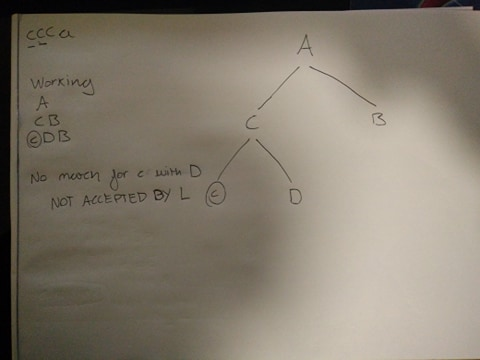 ccca
Working
A
CB
cDB
No match for c with D
NOT ACCEPTED BY L
A
C
B
c
D